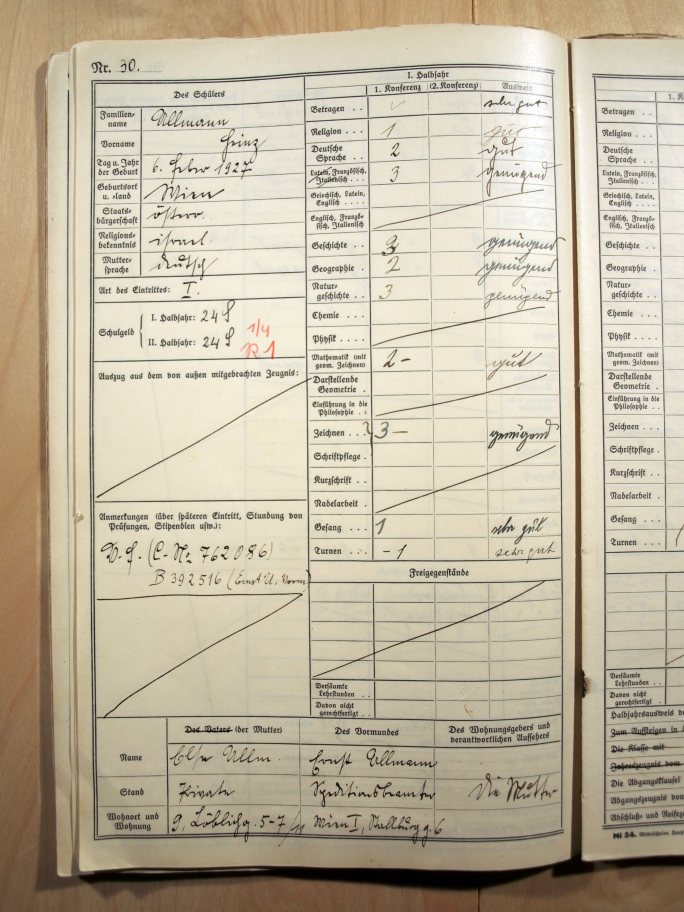 Nr. 30.
Des Schülers
Familien-
name
Ullmann
Vorname
Heinz
Tag u. Jahr
der Geburt
6. Feber 1927
Geburtsort
u. -land
Wien
Staats-
bürgerschaft
österr.
Religions-
bekenntnis
israel.
Mutter-
sprache
deutsch
Art des Eintrittes: I.
Schulgeld
I. Halbjahr: 24 S
II. Halbjahr: 24 S
1/4
R 1
Auszug aus dem von außen mitgebrachten Zeugnis:
Anmerkungen (über späteren Eintritt, Stundung von
Prüfungen, Stipendien usw.):
D.S. (C-Nr 762086)
B 392516 (Ernst U., Vorm)
I. Halbjahr
1. Konferenz (2. Konferenz) Ausweis
Betragen . . sehr gut
Religion . . 1 gut
Deutsche
Sprache . . 2 gut
Latein, Französisch,
Italienisch . . 3 genügend
Griechisch, Latein,
Englisch . . . .
Englisch, Franzö-
sisch, Italienisch
Geschichte . . 3 genügend
Geographie . 2 genügend
Natur-
geschichte . . 3 genügend
Chemie . . .
Physik . . .
Mathematik (mit
geom. Zeichnen) 2- gut
Darstellende
Geometrie .
Einführung in die
Philosophie . .
Zeichnen . . . 3- genügend
Schriftpflege .
Kurzschrift . .
Nadelarbeit .
Gesang . . 1 sehr gut
Turnen . . -1 sehr gut
Freigegenstände
Versäumte
Lehrstunden . .
Davon nicht
gerechtfertigt . .
Des Vaters (der Mutter) Des Vormundes Des Wohnungsgebers und
verantwortlichen Aufsehers
Name Else Ullm. Ernst Ullmann
Stand Private Speditionsbeamter Die Mutter
Wohnort und
Wohnung
9., Löblichg. 5-7/11 Wien I, Stallburgg. 6
1. K
Betragen . .
Religion . . .
Deutsche
Sprache . .
Latein, Französisch,
Italienisch . .
Griechisch, Latein,
Englisch . . . .
Englisch, Franzö-
sisch, Italienisch
Geschichte . .
Geographie .
Natur-
geschichte . .
Chemie . . .
Physik . . . .
Mathematik (mit
geom. Zeichnen)
Darstellende
Geometrie .
Einführung in die
Philosophie . .
Zeichnen . . .
Schriftpflege .
Kurzschrift . .
Nadelarbeit .
Gesang . . .
Turnen . . .
Versäumte
Lehrstunden . .
Davon nicht
gerechtfertigt .
Halbjahrsausweis v
Zum Aufsteigen in
Die Klasse mit
Jahreszeugnis vom
Die Abgangsklausel
Abgangszeugnis vom
Abschluß- und Reifez
Mi 54.